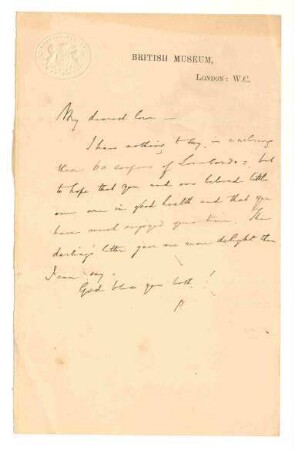 BRITISH MUSEUM,
LONDON: W.C.
My dearest love –
I have nothing to say, in enclosing
these 60 coupons of Lombards, but
to hope that you and our beloved little
ones are in good health and that you
have much enjoyed your time. The
darling's letter gave me more delight than
I can say.
God bless you both!